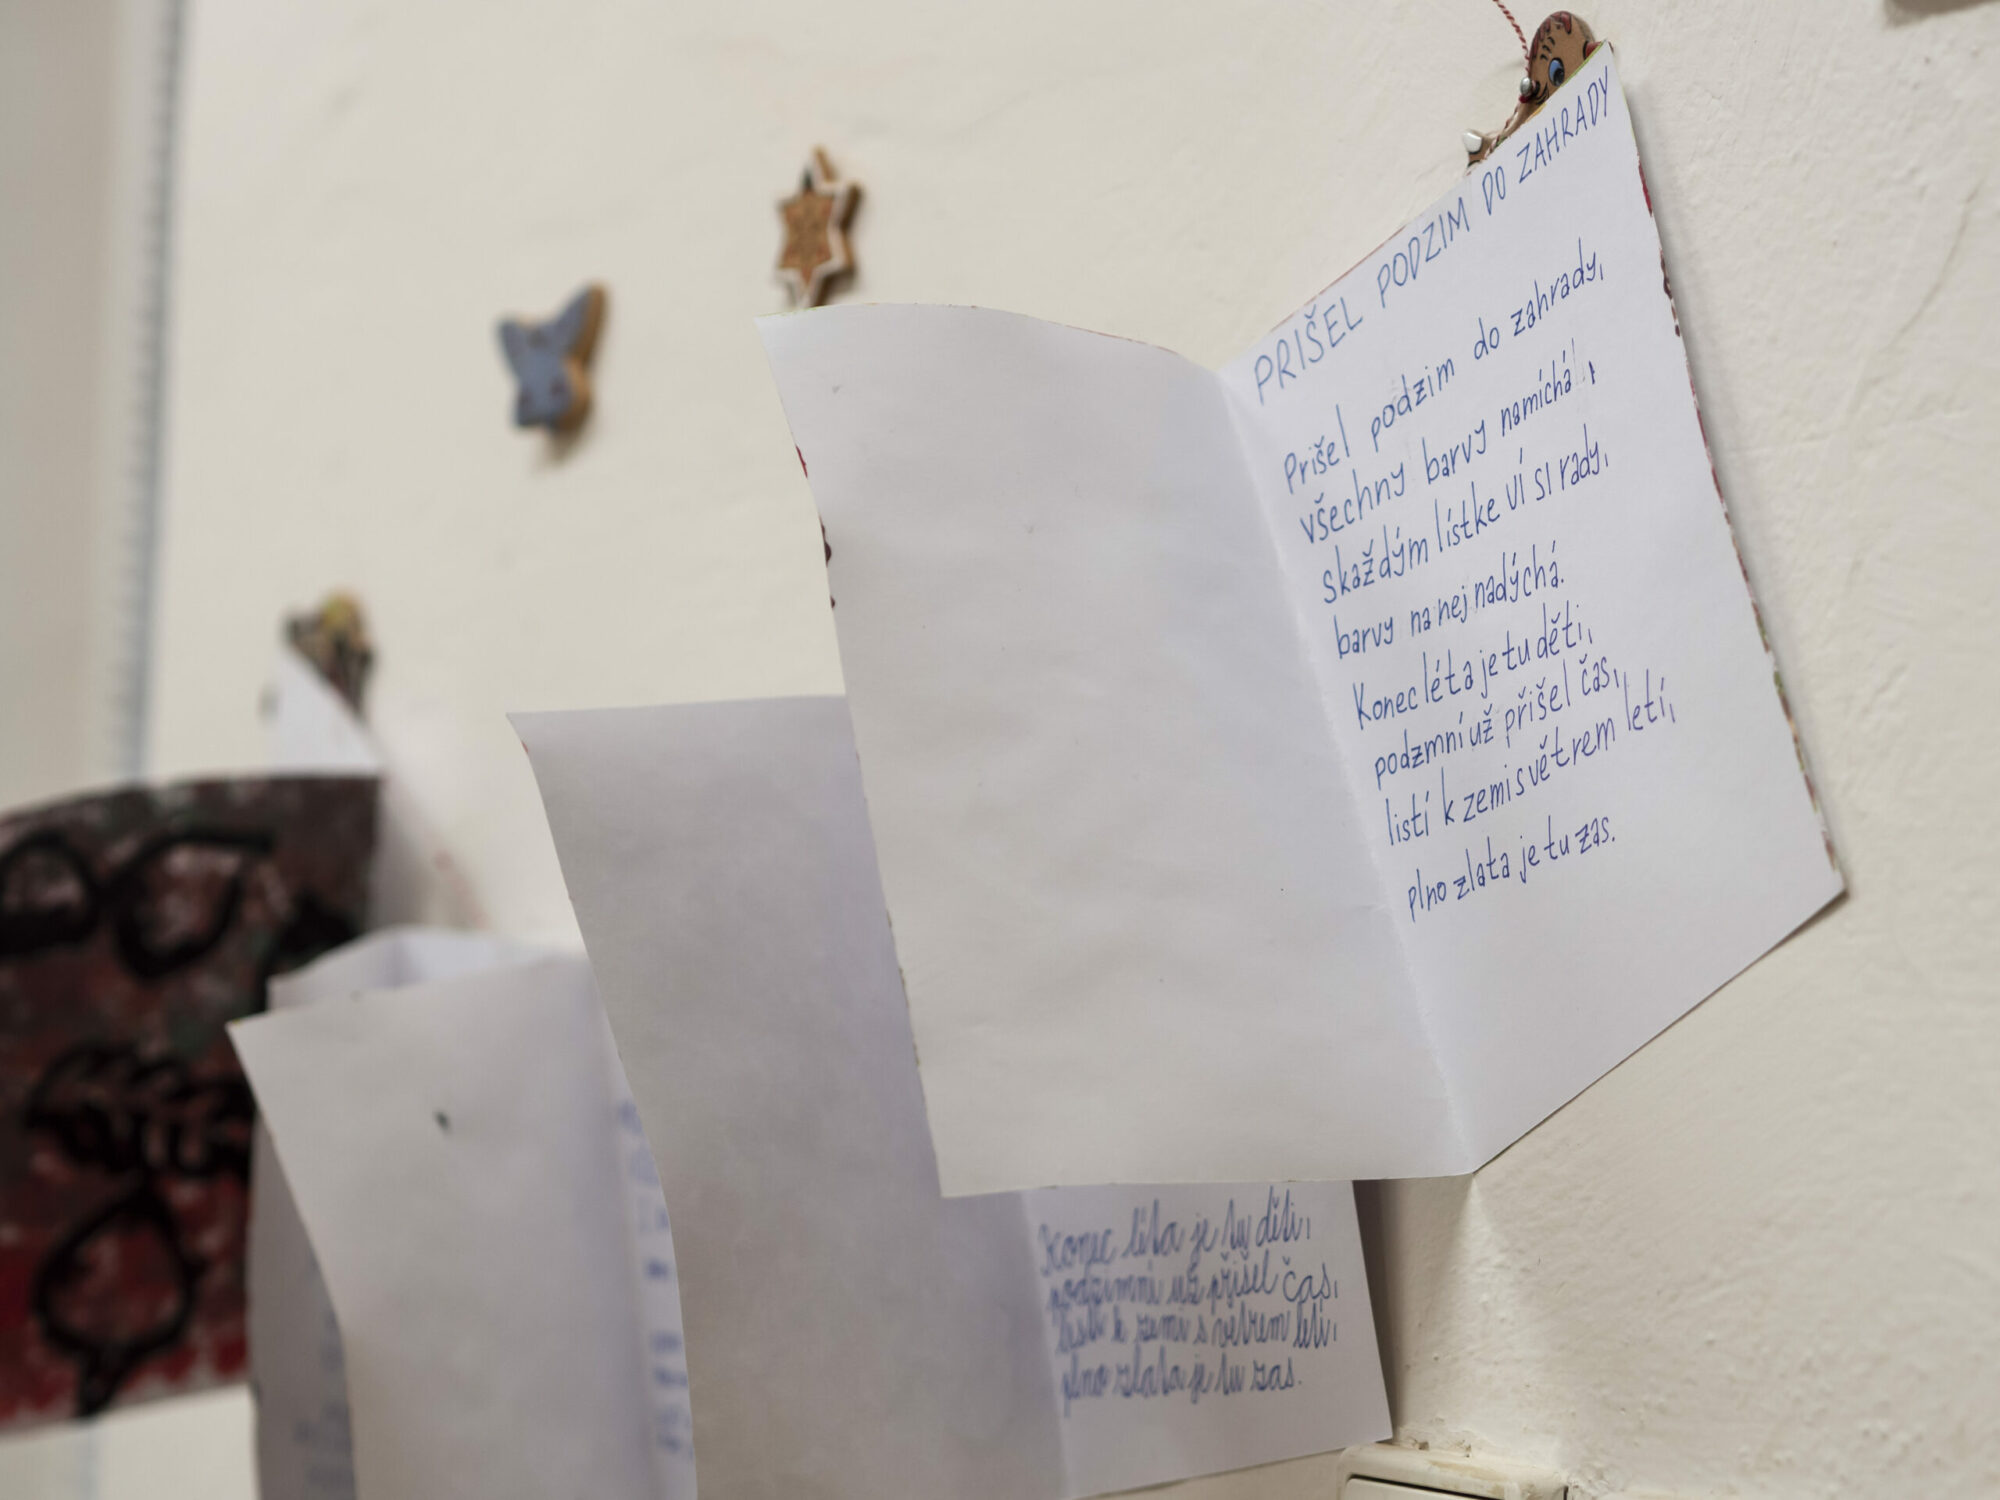 PRIŠEL PODZIM DO ZAHRADY
Prišel podzim do zahrady,
všechny barvy namíchá,
skaždým lístke ví si rady,
barvy na nej nadýchá.
Konec léta je tu děti,
podzmní už přišel čas,
listí k zemi s větrem letí,
plno zlata je tu zas.
Konec léta je tu děti,
podzimní už přišel čas,
listí k zemi s větrem letí,
plno zlata je tu zas.